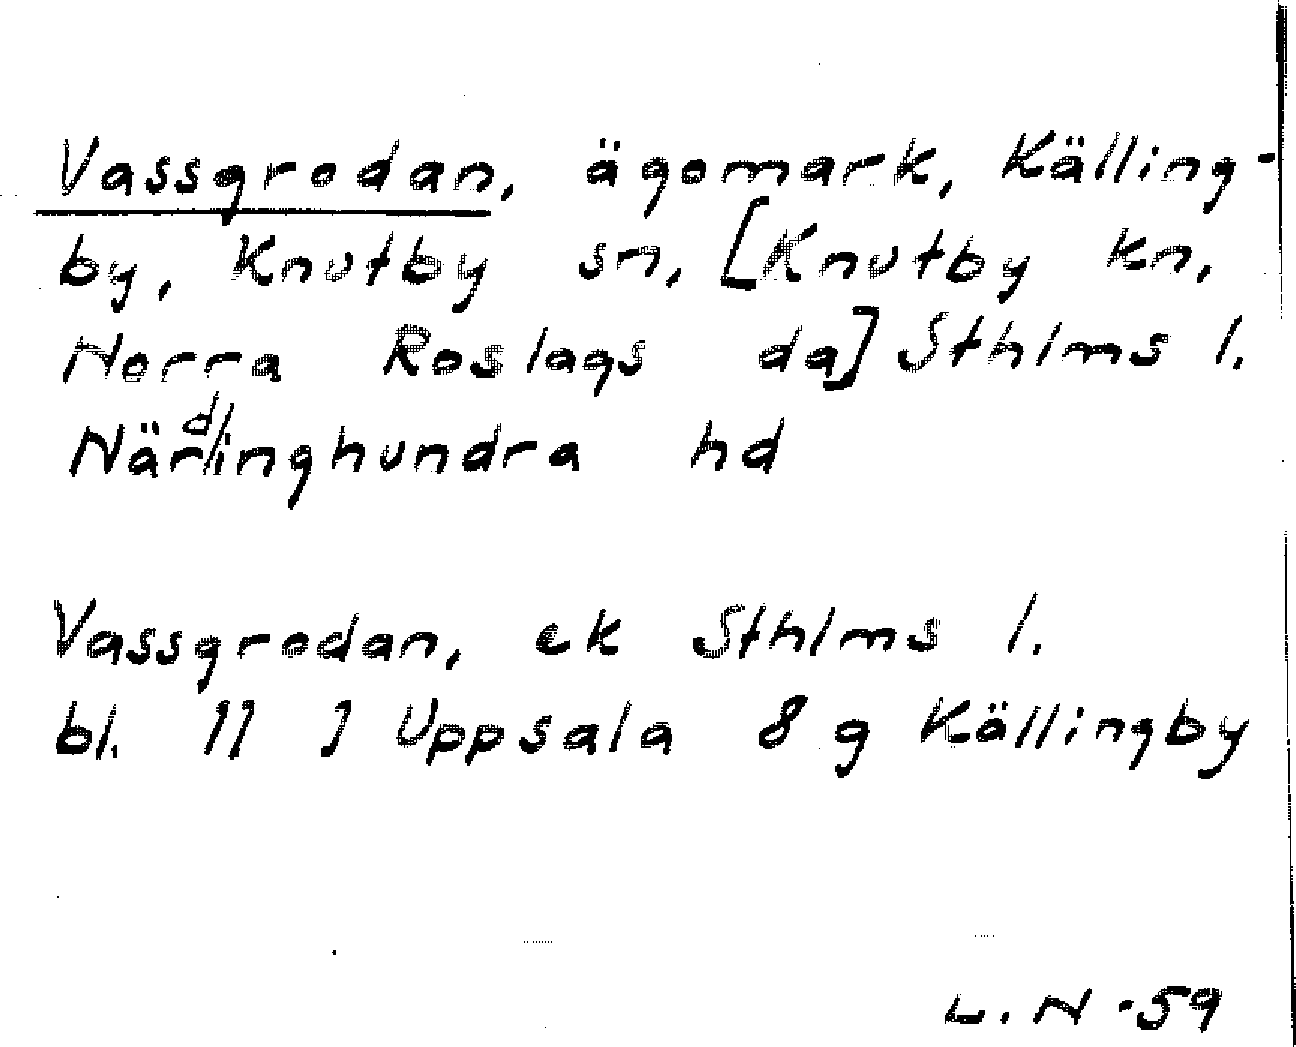 Vassgrodan, ägomark, Källing-
by, Knutby sn, [Knutby kn,
Norra Roslags da] Sthlms l.
Närdinghundra hd

Vassgrodan, ek Sthlms l.
bl. 11 J Uppsala 8 g Källingby

L. N -59